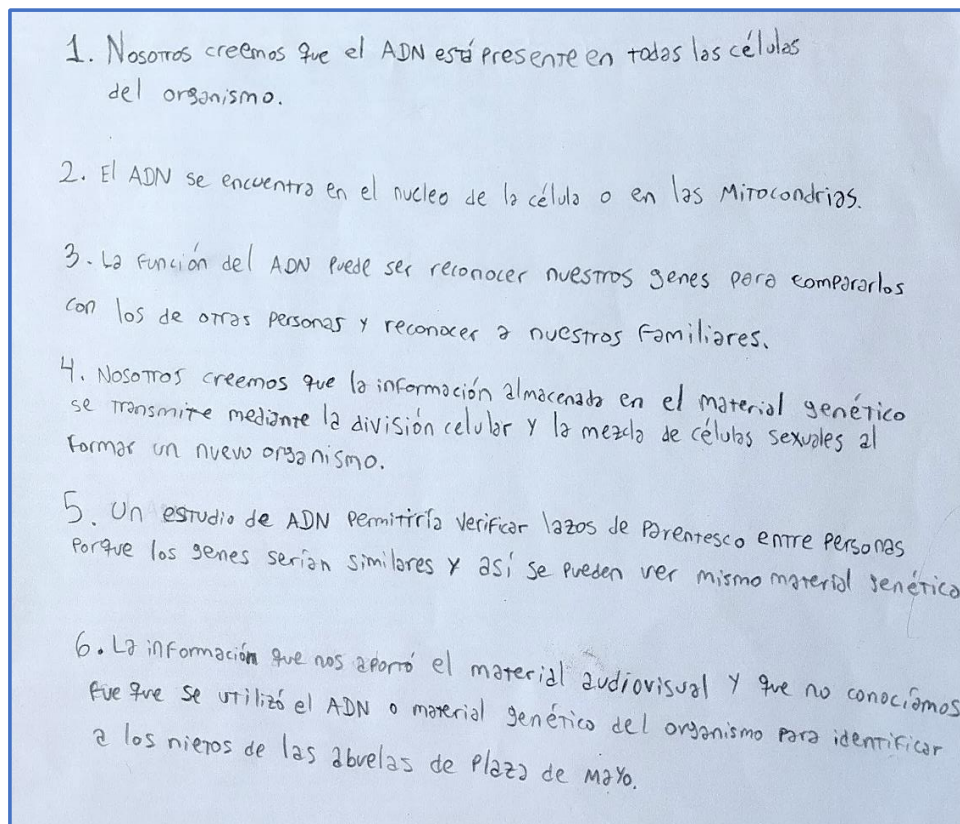 1. Nosotros creemos que el ADN está presente en todas las células
del organismo.
2. El ADN se encuentra en el nucleo de la célula o en las Mitocondrias.
3. La función del ADN puede ser reconocer nuestros genes para compararlos
con los de otras personas y reconocer a nuestros familiares.
4. Nosotros creemos que la información almacenada en el material genético
se transmite mediante la división celular y la mezcla de células sexuales al
formar un nuevo organismo.
5. Un estudio de ADN permitiría verificar lazos de parentesco entre personas
porque los genes serían similares y así se pueden ver mismo material genético
6. La información que nos aportó el material audiovisual y que no conocíamos
fue que se utilizó el ADN o material genético del organismo para identificar
a los nietos de las abuelas de Plaza de Mayo.